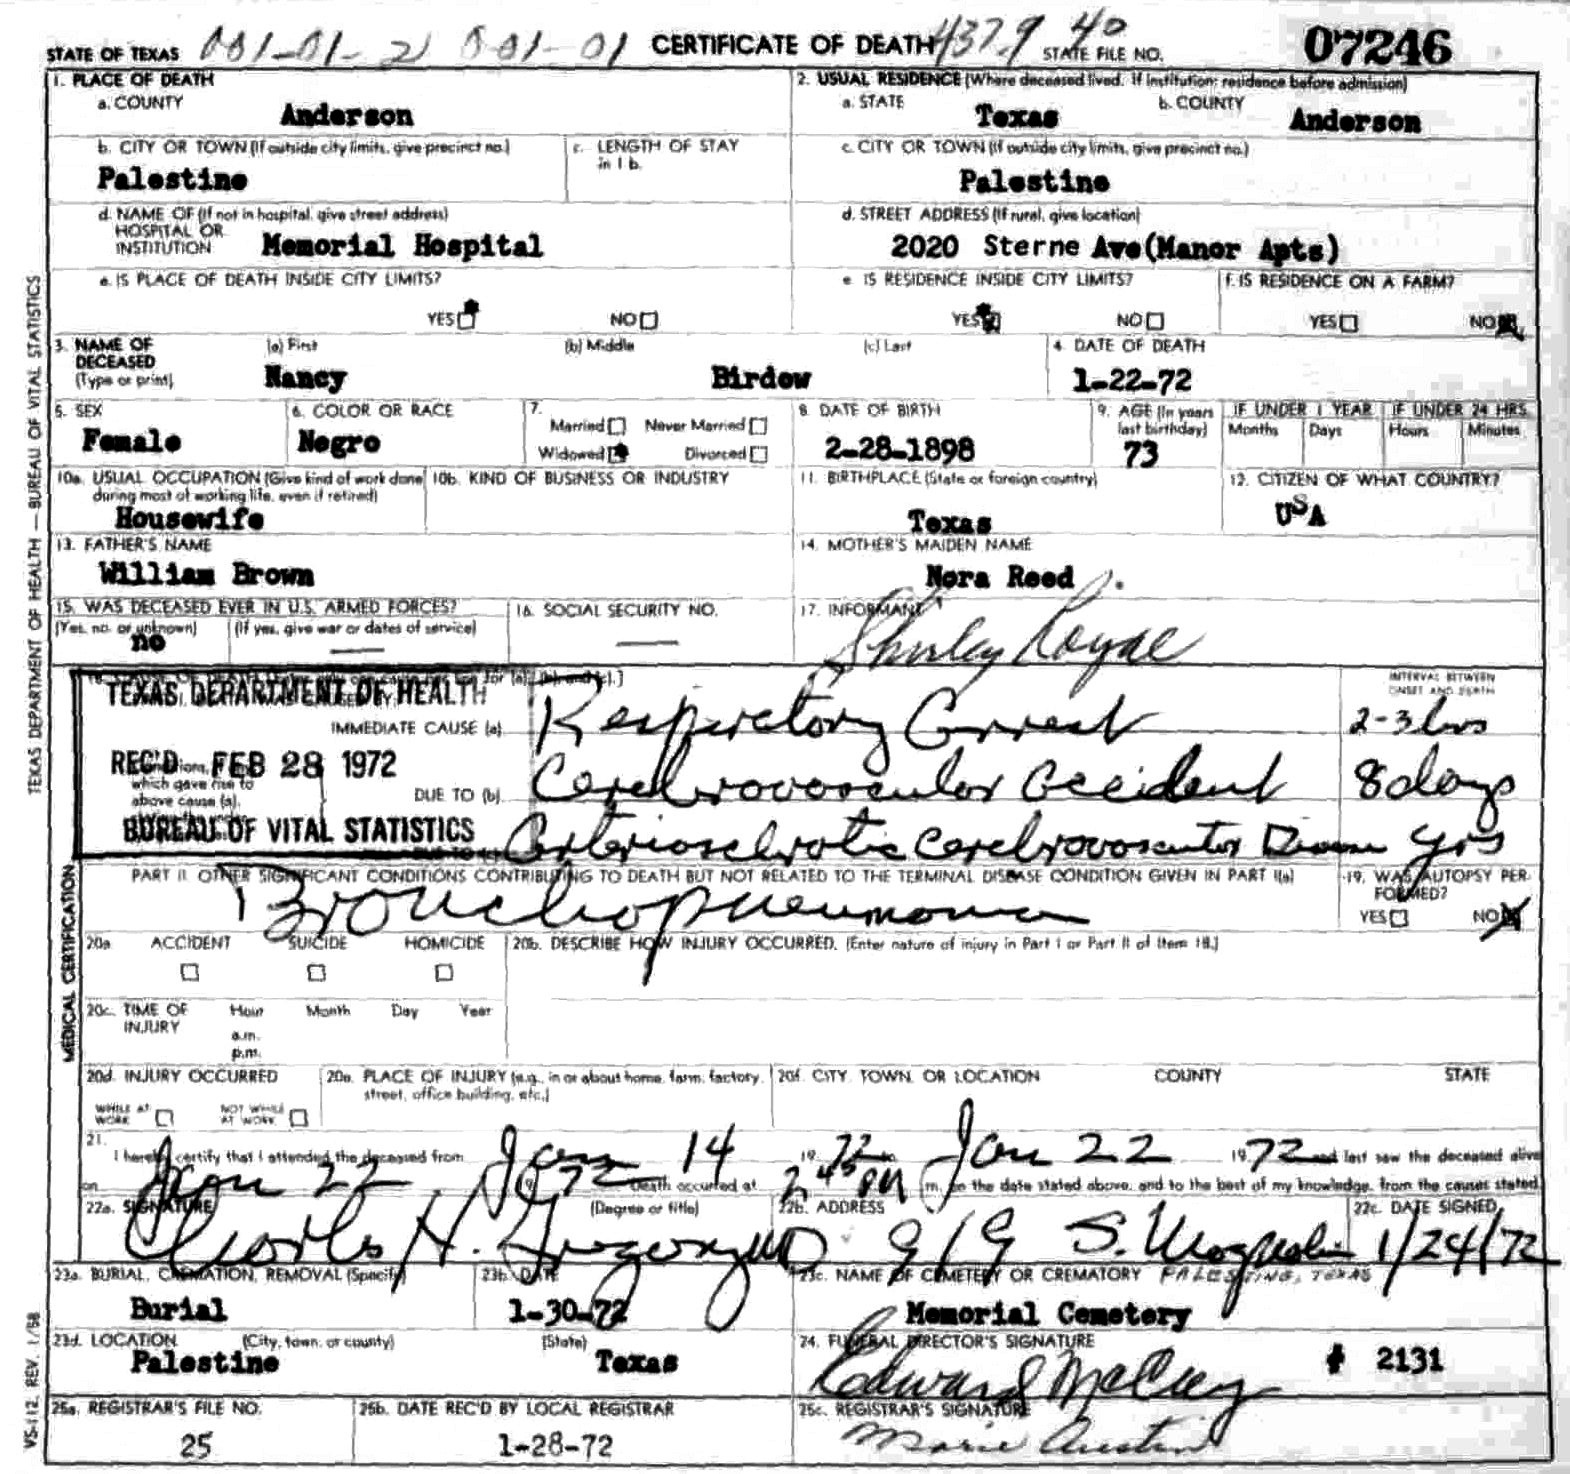 STATE OF TEXAS 001-01-2 001-01 CERTIFICATE OF DEATH 437.9 40 STATE FILE NO. 07246
1. PLACE OF DEATH
a. COUNTY
Anderson
2. USUAL RESIDENCE (Where deceased lived. If institution: residence before admission)
a. STATE Texas b. COUNTY Anderson
b. CITY OR TOWN (If outside city limits, give precinct no.)
Palestine
c. LENGTH OF STAY in 1 b.
c. CITY OR TOWN (If outside city limits, give precinct no.)
Palestine
d. NAME OF (If not in hospital, give street address)
HOSPITAL OR
INSTITUTION Memorial Hospital
d. STREET ADDRESS (If rural, give location)
2020 Sterne Ave(Manor Apts)
e. IS PLACE OF DEATH INSIDE CITY LIMITS?
YES NO
e. IS RESIDENCE INSIDE CITY LIMITS?
YES NO
f. IS RESIDENCE ON A FARM?
YES NO
3. NAME OF DECEASED (Type or print)
(a) First (b) Middle (c) Last
Nancy Birdow
4. DATE OF DEATH
1-22-72
5. SEX
Female
6. COLOR OR RACE
Negro
7.
Married Never Married
Widowed Divorced
8. DATE OF BIRTH
2-28-1898
9. AGE (In years last birthday)
73
IF UNDER 1 YEAR
Months Days
IF UNDER 24 HRS.
Hours Minutes
10a. USUAL OCCUPATION (Give kind of work done during most of working life, even if retired)
Housewife
10b. KIND OF BUSINESS OR INDUSTRY
11. BIRTHPLACE (State or foreign country)
Texas
12. CITIZEN OF WHAT COUNTRY?
USA
13. FATHER'S NAME
William Brown
14. MOTHER'S MAIDEN NAME
Nora Reed
15. WAS DECEASED EVER IN U.S. ARMED FORCES?
(Yes, no, or unknown) (If yes, give war or dates of service)
no —
16. SOCIAL SECURITY NO.
—
17. INFORMANT
Shirley Royal
TEXAS DEPARTMENT OF HEALTH
REC'D FEB 28 1972
BUREAU OF VITAL STATISTICS
INTERVAL BETWEEN ONSET AND DEATH
IMMEDIATE CAUSE (a) Respiratory Arrest 2-3 hrs
which gave rise to above cause (a),
DUE TO (b) Cerebrovascular accident 8 days
Arteriosclerotic Cerebrovascular Disease yrs
PART II. OTHER SIGNIFICANT CONDITIONS CONTRIBUTING TO DEATH BUT NOT RELATED TO THE TERMINAL DISEASE CONDITION GIVEN IN PART I(a)
Bronchopneumonia
19. WAS AUTOPSY PERFORMED?
YES NO
20a. ACCIDENT SUICIDE HOMICIDE
20b. DESCRIBE HOW INJURY OCCURRED. (Enter nature of injury in Part I or Part II of item 18.)
20c. TIME OF INJURY
Hour Month Day Year
a.m.
p.m.
20d. INJURY OCCURRED
WHILE AT WORK NOT WHILE AT WORK
20e. PLACE OF INJURY (e.g., in or about home, farm, factory, street, office building, etc.)
20f. CITY, TOWN, OR LOCATION COUNTY STATE
21.
I hereby certify that I attended the deceased from Jan 14 1972 to Jan 22 1972 and last saw the deceased alive
on Jan 22 1972 Death occurred at 2 45 PM m, on the date stated above, and to the best of my knowledge, from the causes stated.
22a. SIGNATURE (Degree or title)
Charles H. Gregory MD
22b. ADDRESS
919 S. Magnolia
PALESTINE, TEXAS
22c. DATE SIGNED
1/24/72
23a. BURIAL, CREMATION, REMOVAL (Specify)
Burial
23b. DATE
1-30-72
23c. NAME OF CEMETERY OR CREMATORY
Memorial Cemetery
23d. LOCATION (City, town, or county) (State)
Palestine Texas
24. FUNERAL DIRECTOR'S SIGNATURE
Edward McCoy # 2131
25a. REGISTRAR'S FILE NO.
25
25b. DATE REC'D BY LOCAL REGISTRAR
1-28-72
25c. REGISTRAR'S SIGNATURE
Marie Austin
TEXAS DEPARTMENT OF HEALTH — BUREAU OF VITAL STATISTICS
MEDICAL CERTIFICATION
VS-112, REV. 1/58